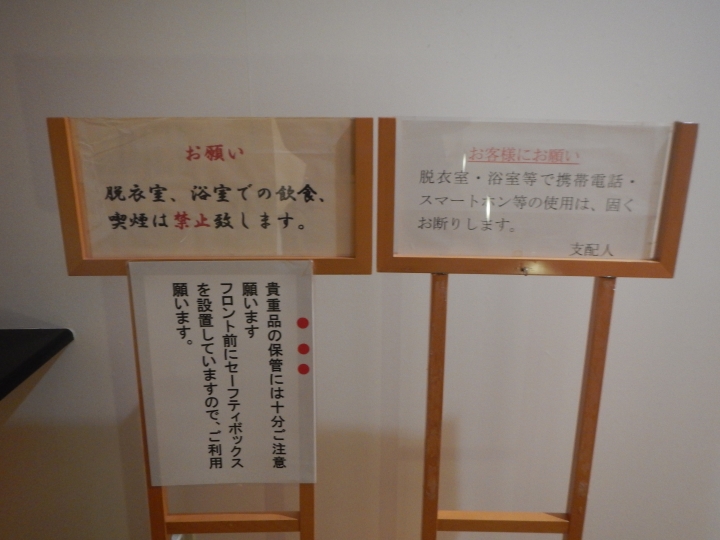 お願い
脱衣室、浴室での飲食、
喫煙は禁止致します。
お客様にお願い
脱衣室・浴室等で携帯電話・
スマートホン等の使用は、固く
お断りします。
支配人
●●●
貴重品の保管には十分ご注意
願います
フロント前にセーフティボックス
を設置していますので、ご利用
願います。